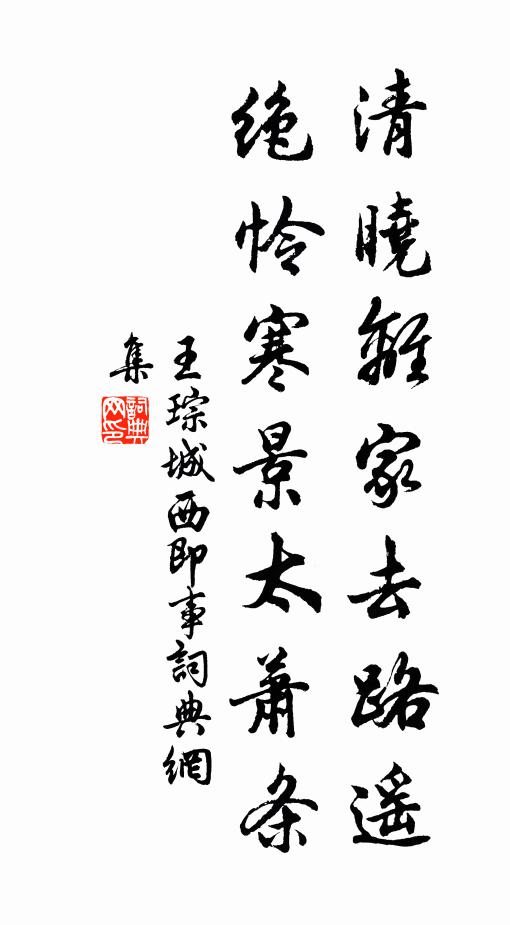 清曉離家去路遥
绝怜寒景太蕭条
王琮城西即事詞典網
集
詞典網印